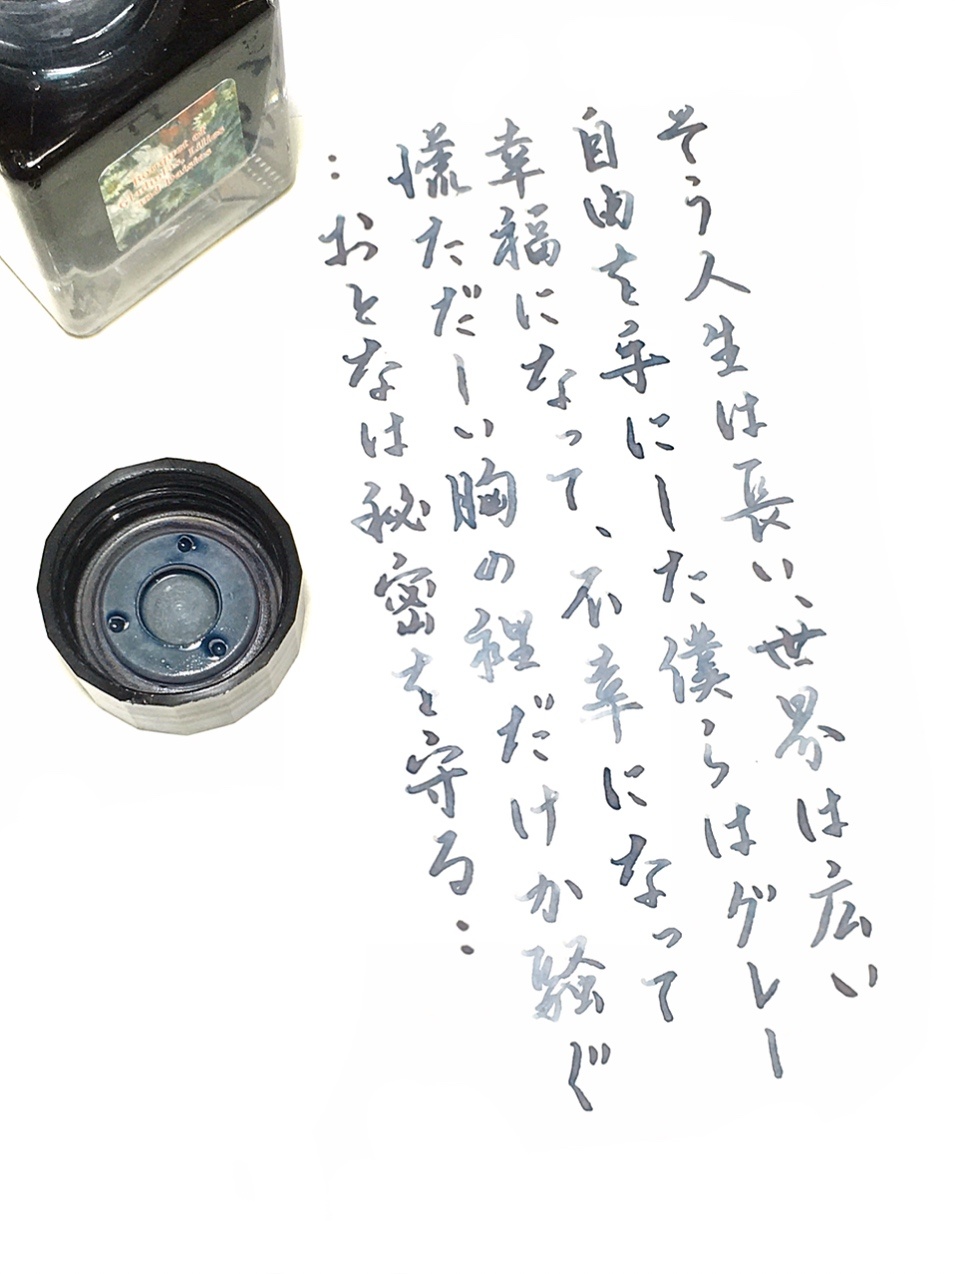 そう人生は長い、世界は広い
自由を手にした僕らはグレー
幸福になって、不幸になって
慌ただしい胸の裡だけが騒ぐ
:おとなは秘密を守る: